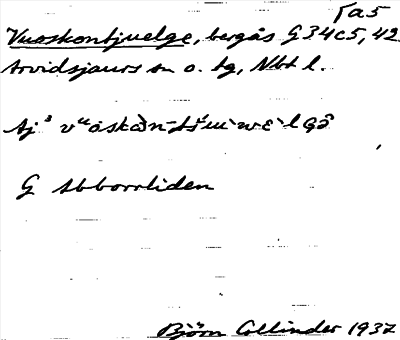 Ta5
Vuoskontjuelge, bergås G34c5, 42
Arvidsjaurs sn o. tg, Nbt l.
Aj
G Abborrliden
Björn Collinder 1937